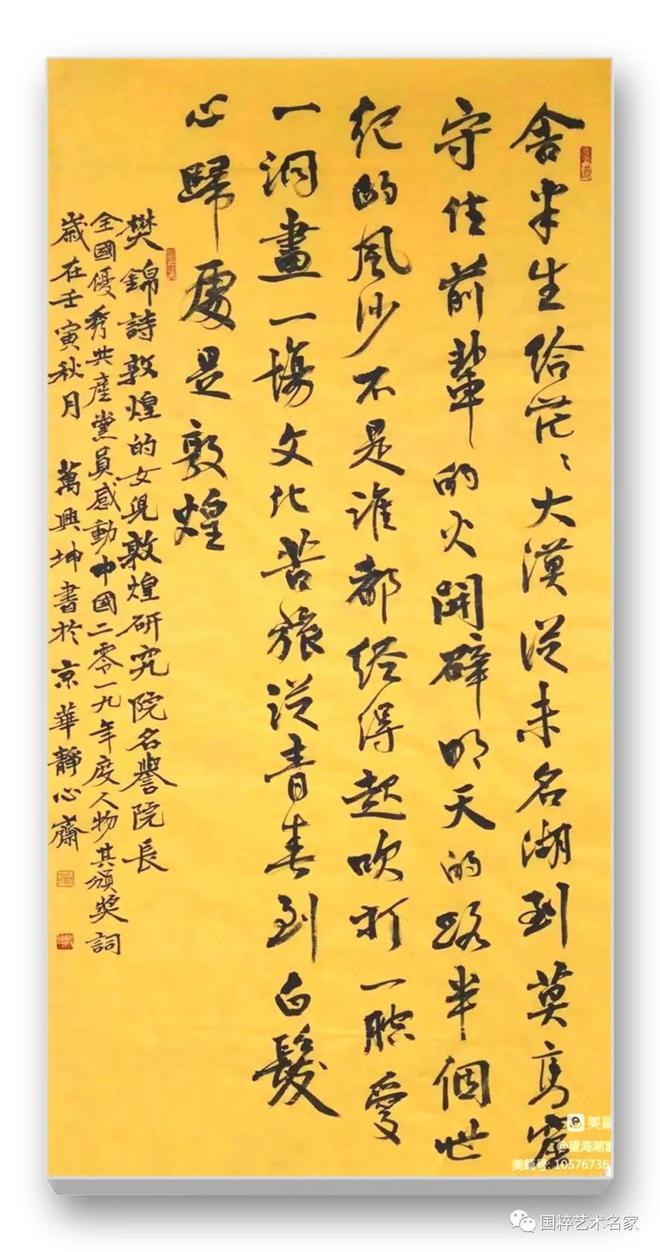 舍半生給茫〻大漠從未名湖到莫高窟
守住前輩的火開辟明天的路半個世
紀的風沙不是誰都經得起吹打一腔愛
一洞畫一場文化苦旅從青春到白髮
心歸處是敦煌
樊錦詩敦煌的女兒敦煌研究院名譽院長
全國優秀共產黨員感動中國二零一九年度人物其頒獎詞
歲在壬寅秋月 萬興坤書於京華靜心齋
美篇
@望海潮
美篇号: 10576736
国粹艺术名家